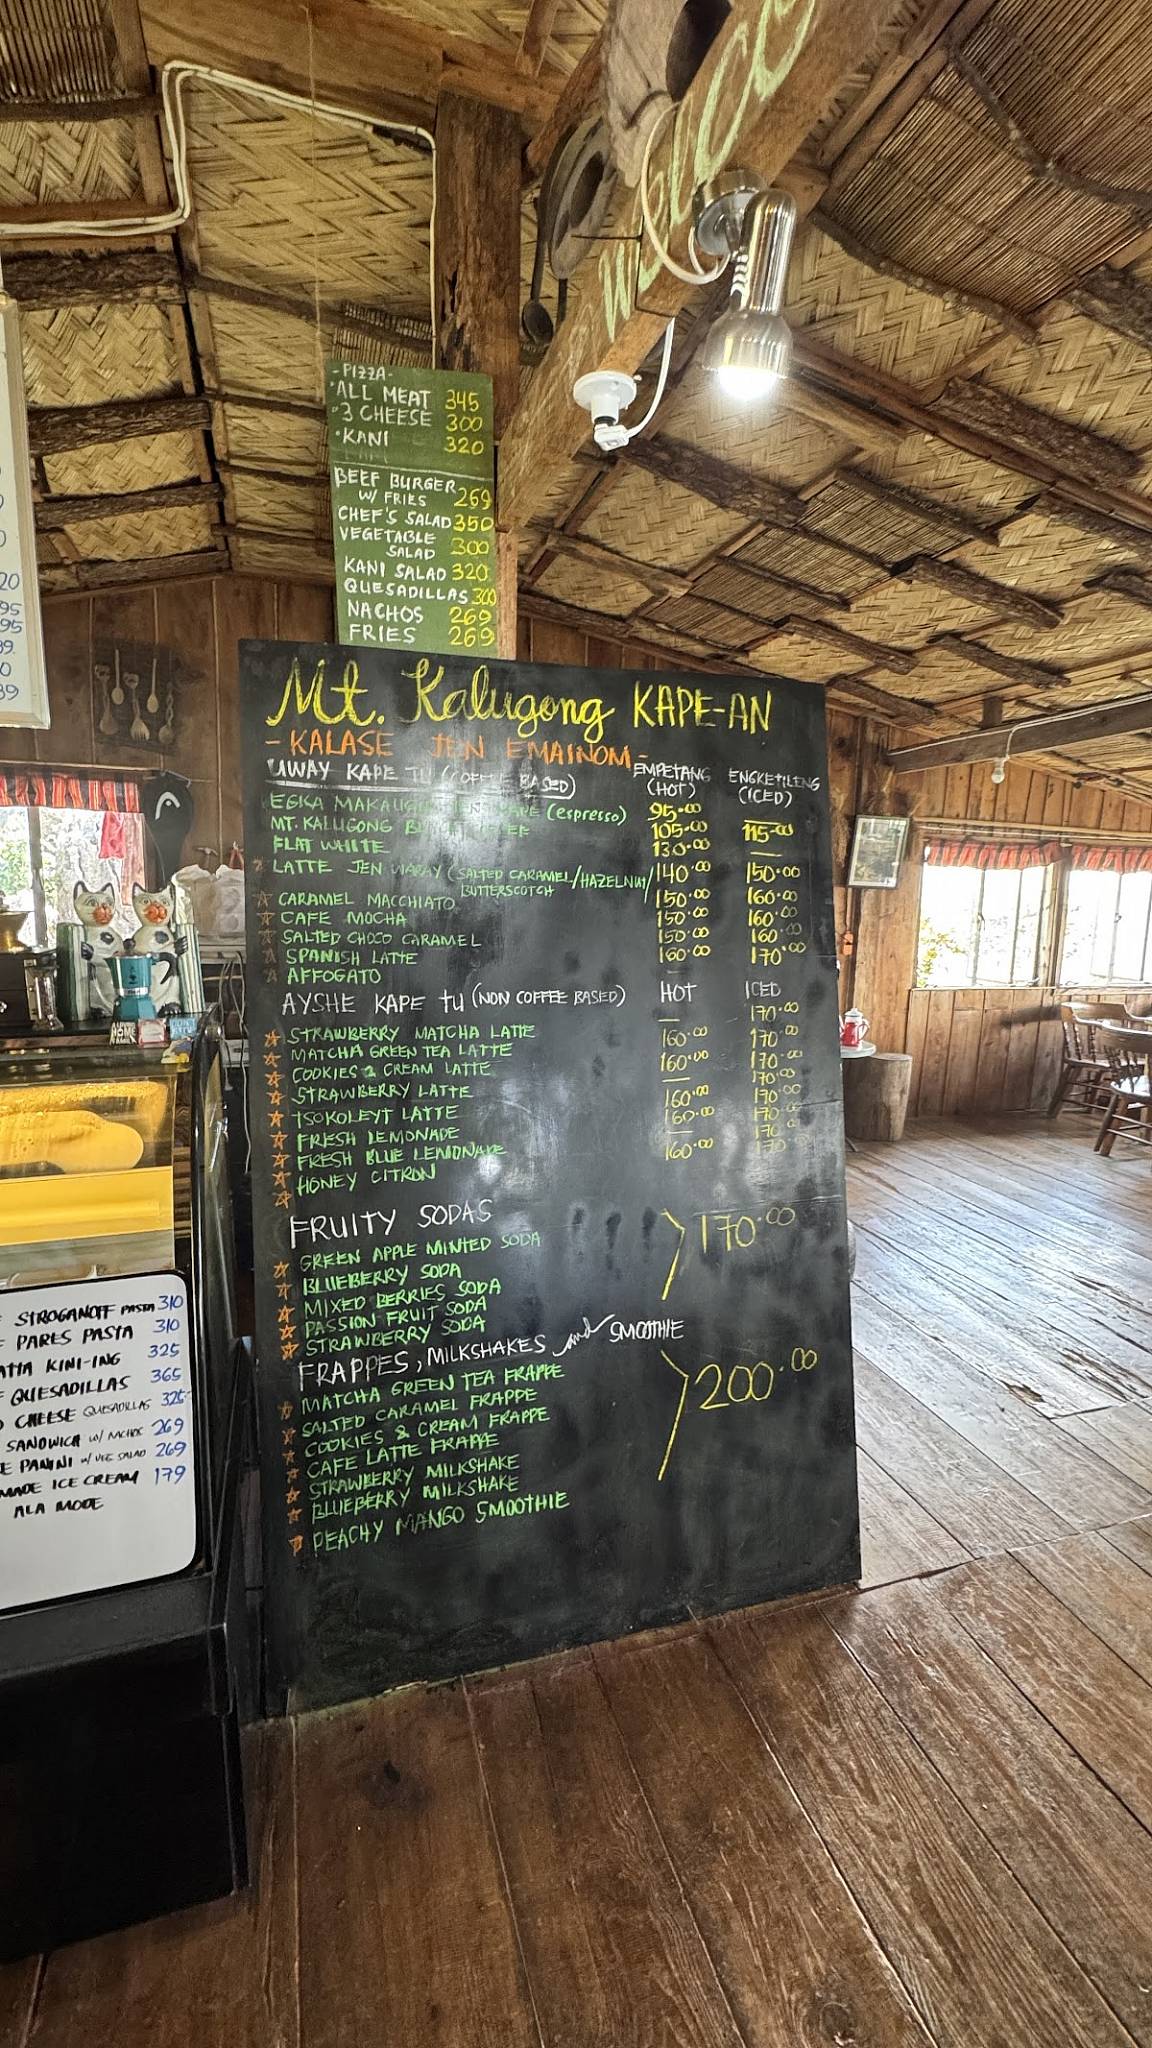 WELCOME
-PIZZA-
·ALL MEAT 345
·3 CHEESE 300
·KANI 320
BEEF BURGER
W/ FRIES 269
CHEF'S SALAD 350
VEGETABLE
SALAD 300
KANI SALAD 320
QUESADILLAS 300
NACHOS 269
FRIES 269
Mt. Kalugong KAPE-AN
- KALASE JEN EMAINOM -
UWAY KAPE TU (COFFEE BASED) EMPETANG (HOT) ENGKETILENG (ICED)
(espresso) 95.00
MT. KALUGONG 105.00 115.00
FLAT WHITE 130.00 —
LATTE JEN (SALTED CARAMEL/HAZELNUT/ 140.00 150.00
BUTTERSCOTCH
CARAMEL MACCHIATO 150.00 160.00
CAFE MOCHA 150.00 160.00
SALTED CHOCO CARAMEL 150.00 160.00
SPANISH LATTE 160.00 170.00
AFFOGATO
AYSHE KAPE TU (NON COFFEE BASED) HOT ICED
STRAWBERRY MATCHA LATTE — 170.00
MATCHA GREEN TEA LATTE 160.00 170.00
COOKIES & CREAM LATTE 160.00 170.00
STRAWBERRY LATTE — 170.00
TSOKOLEYT LATTE 160.00 170.00
FRESH LEMONADE 160.00 170
FRESH BLUE LEMONADE — 170
HONEY CITRON 160.00 170
FRUITY SODAS
GREEN APPLE MINTED SODA 170.00
BLUEBERRY SODA
MIXED BERRIES SODA
PASSION FRUIT SODA
STRAWBERRY SODA
FRAPPES, MILKSHAKES and SMOOTHIE
MATCHA GREEN TEA FRAPPE 200.00
SALTED CARAMEL FRAPPE
COOKIES & CREAM FRAPPE
CAFE LATTE FRAPPE
STRAWBERRY MILKSHAKE
BLUEBERRY MILKSHAKE
PEACHY MANGO SMOOTHIE
STROGANOFF PASTA 310
PARES PASTA 310
KINI-ING 325
QUESADILLAS 365
CHEESE QUESADILLAS 325
SANDWICH W/ NACHOS 269
PANINI W/ VEG SALAD 269
MADE ICE CREAM 179
ALA MODE